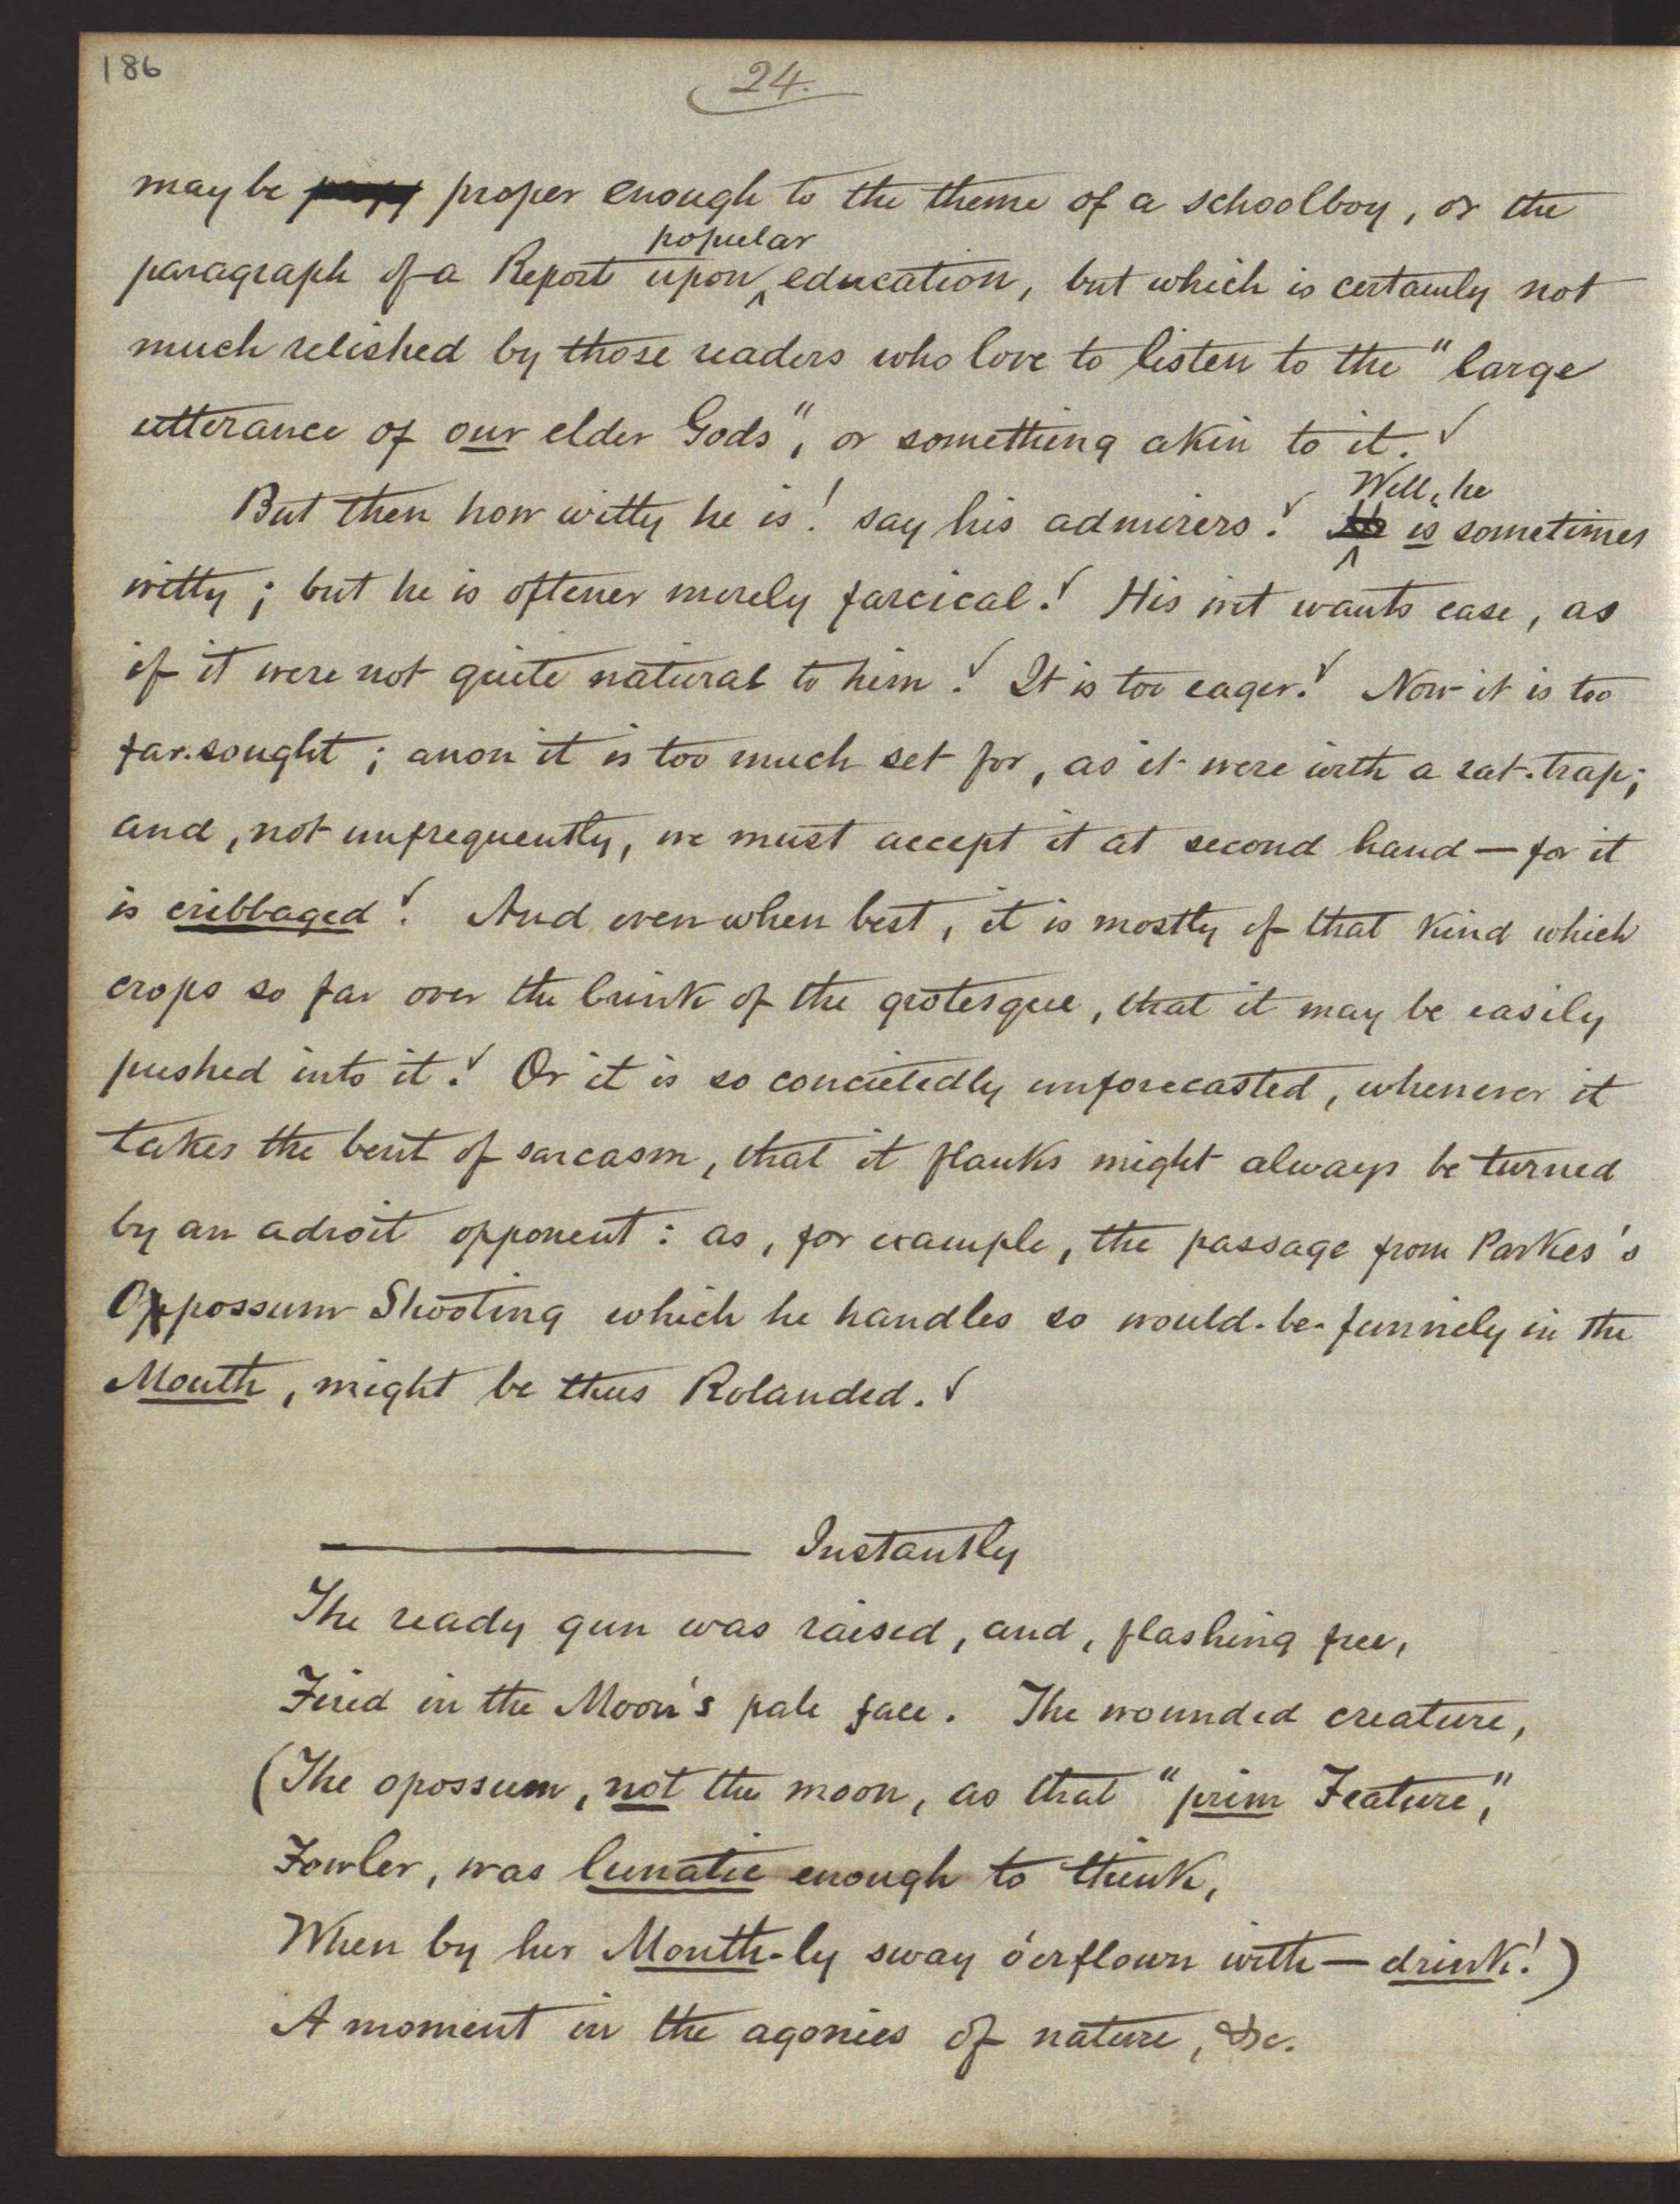 186
24.
may be proper enough to the theme of a schoolboy, or the
popular
paragraph of a Report upon ^ education, but which is certainly not
much relished by those readers who love to listen to the "large
utterance of our elder Gods", or something akin to it.
Well, he
But then how witty he is! say his admirers. He is sometimes
witty; but he is oftener merely farcical. His wit wants ease, as
if it were not quite natural to him. It is too eager. Now it is too
far-sought; anon it is too much set for, as it were with a rat-trap;
and, not unfrequently, we must accept it at second hand — for it
is cribbaged. And even when best, it is mostly of that kind which
crops so far over the brink of the grotesque, that it may be easily
pushed into it. Or it is so concietedly unforecasted, whenever it
takes the bent of sarcasm, that it flanks might always be turned
by an adroit opponent: as, for example, the passage from Parkes's
Oppossum Shooting which he handles so would-be-funnily in the
Month, might be thus Rolanded.
——— Instantly
The ready gun was raised, and, flashing free,
Fired in the Moon's pale face. The wounded creature,
(The opossum, not the moon, as that "prim Feature,"
Fowler, was lunatic enough to think,
When by her Month-ly sway o'erflown with — drink!)
A moment in the agonies of nature, &c.